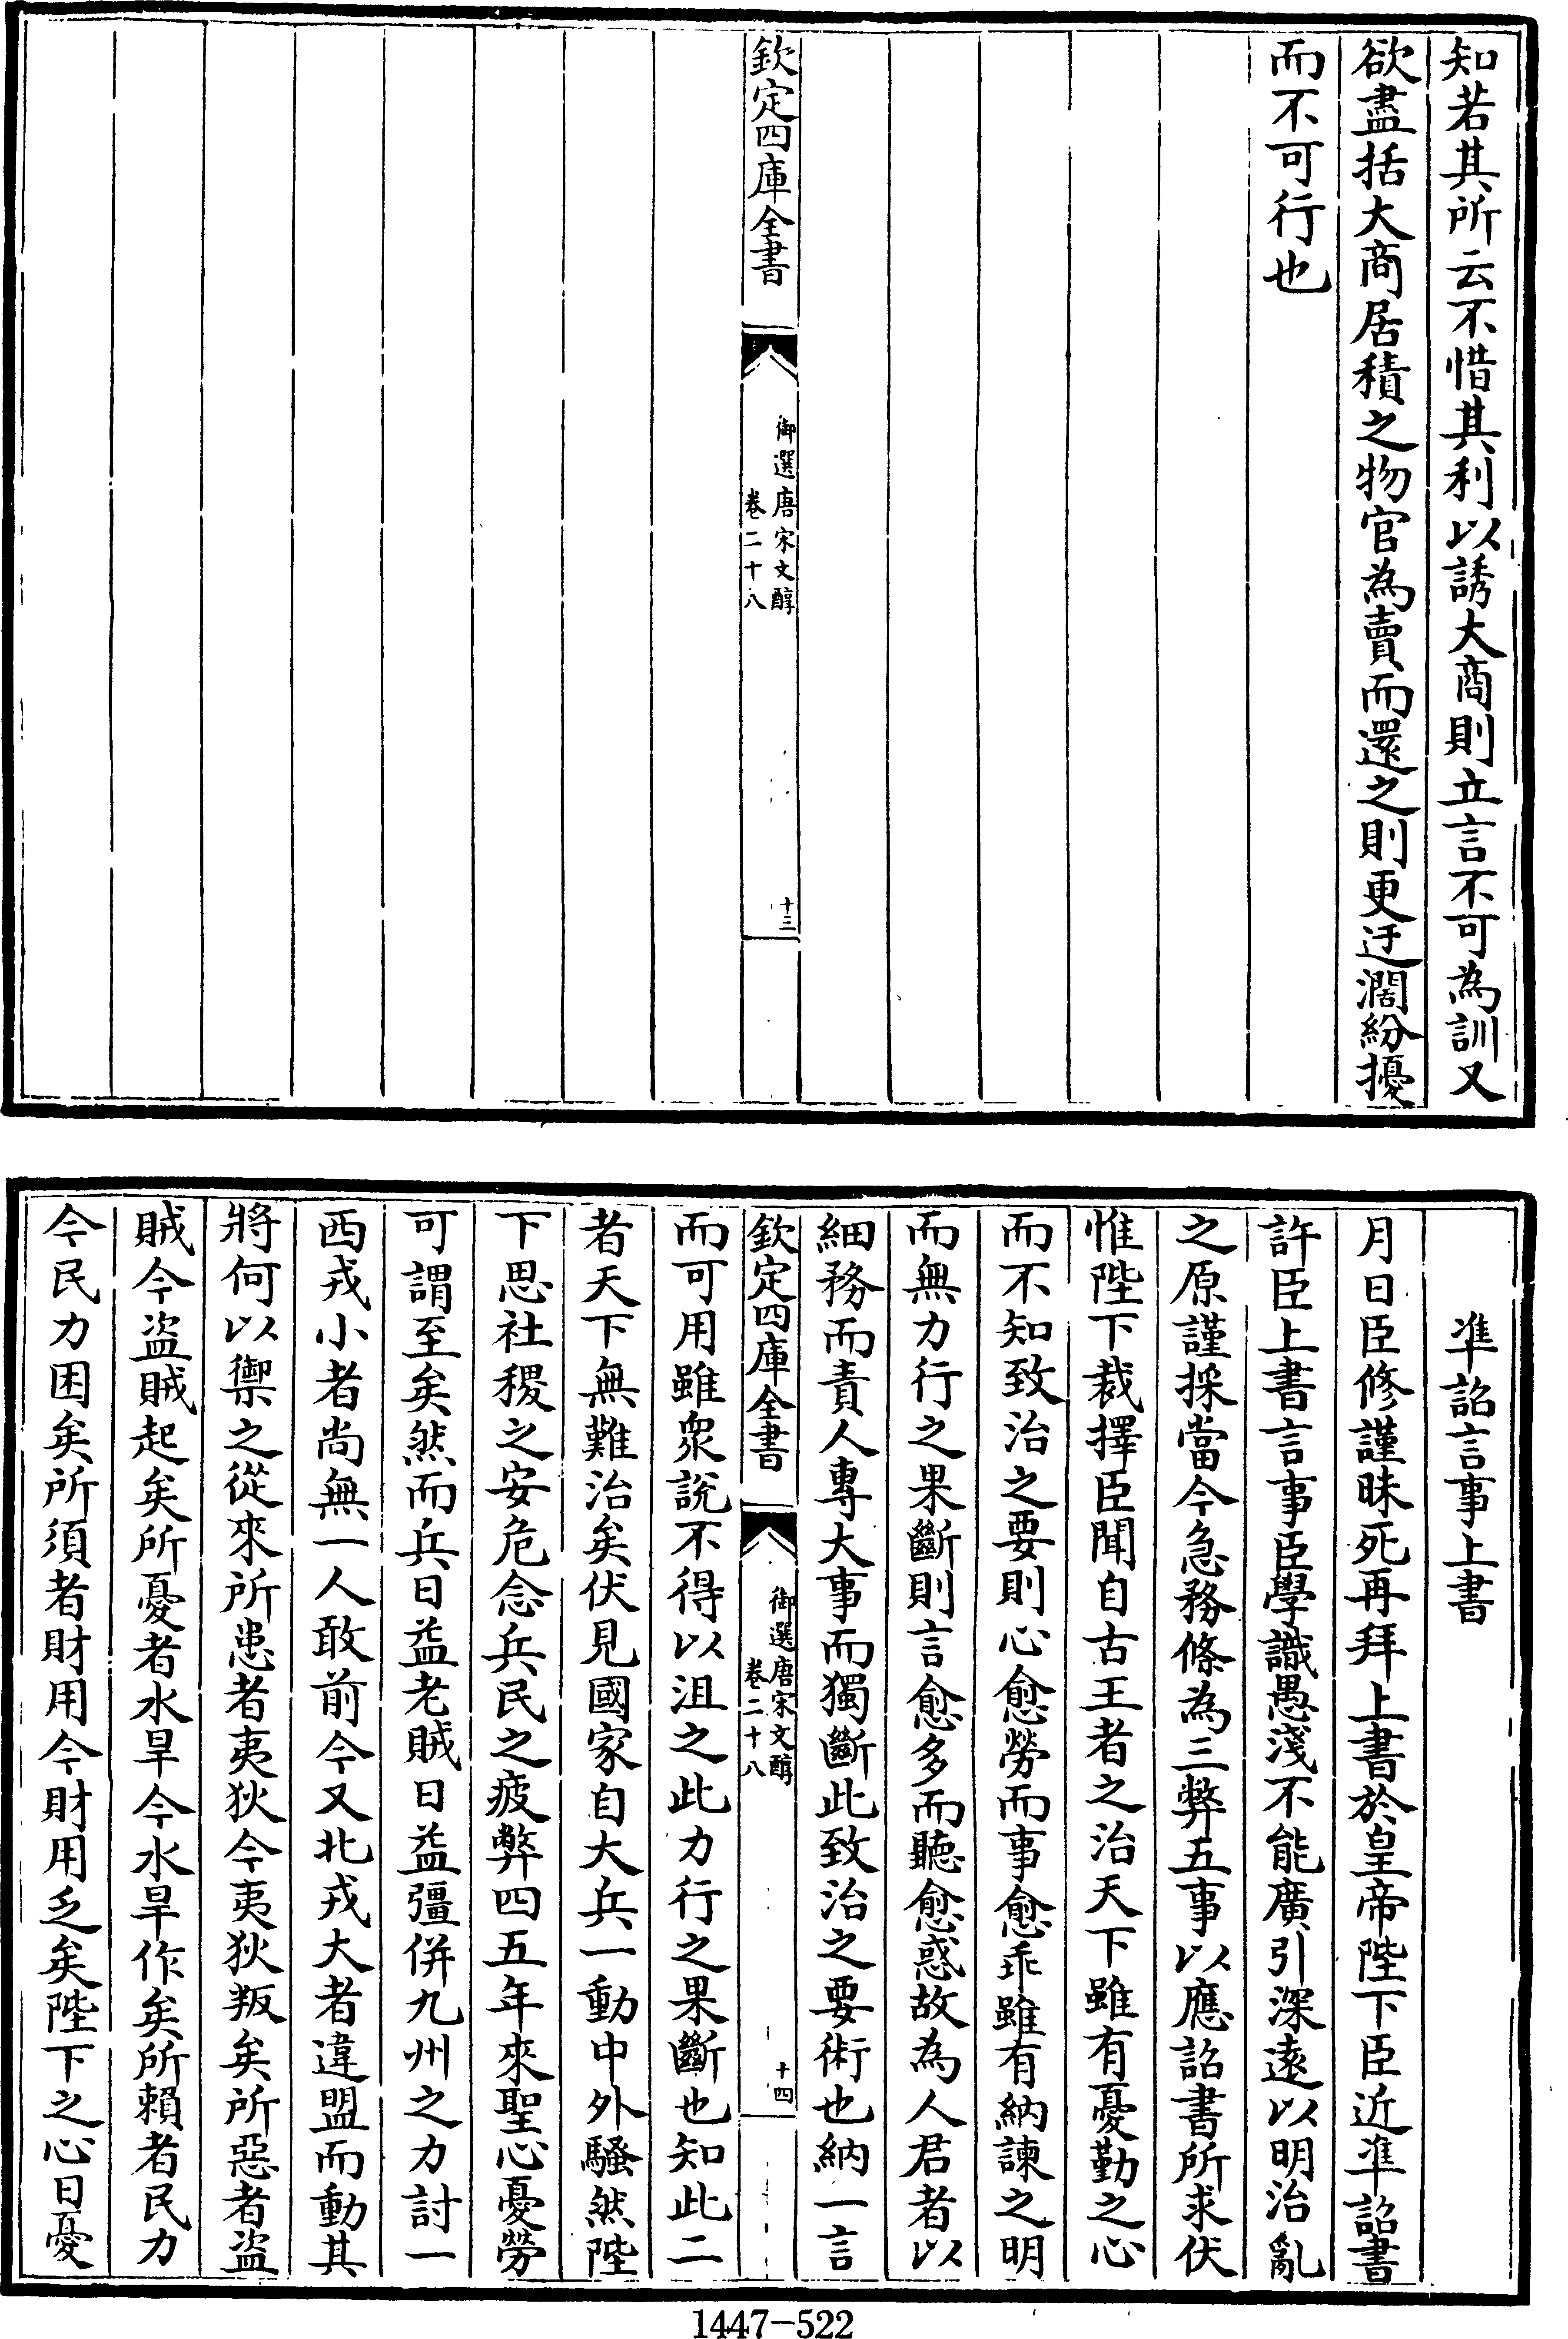 知若其所云不惜其利以誘大商則立言不可為訓又
欲盡括大商居積之物官為賣而還之則更迂濶紛擾
而不可行也
欽定四庫全書
御選唐宋文醇
卷二十八
十三
準詔言事上書
月日臣修謹昧死再拜上書於皇帝陛下臣近準詔書
許臣上書言事臣學識愚淺不能廣引深遠以明治亂
之原謹採當今急務條為三弊五事以應詔書所求伏
惟陛下裁擇臣聞自古王者之治天下雖有憂勤之心
而不知致治之要則心愈勞而事愈乖雖有納諫之明
而無力行之果斷則言愈多而聽愈惑故為人君者以
細務而責人專大事而獨斷此致治之要術也納一言
欽定四庫全書
御選唐宋文醇
卷二十八
十四
而可用雖衆說不得以沮之此力行之果斷也知此二
者天下無難治矣伏見國家自大兵一動中外騷然陛
下思社稷之安危念兵民之疲弊四五年來聖心憂勞
可謂至矣然而兵日益老賊日益彊併九州之力討一
西戎小者尚無一人敢前今又北戎大者違盟而動其
將何以禦之從來所患者夷狄今夷狄叛矣所惡者盜
賊今盜賊起矣所憂者水旱今水旱作矣所賴者民力
今民力困矣所須者財用今財用乏矣陛下之心日憂
1447-522